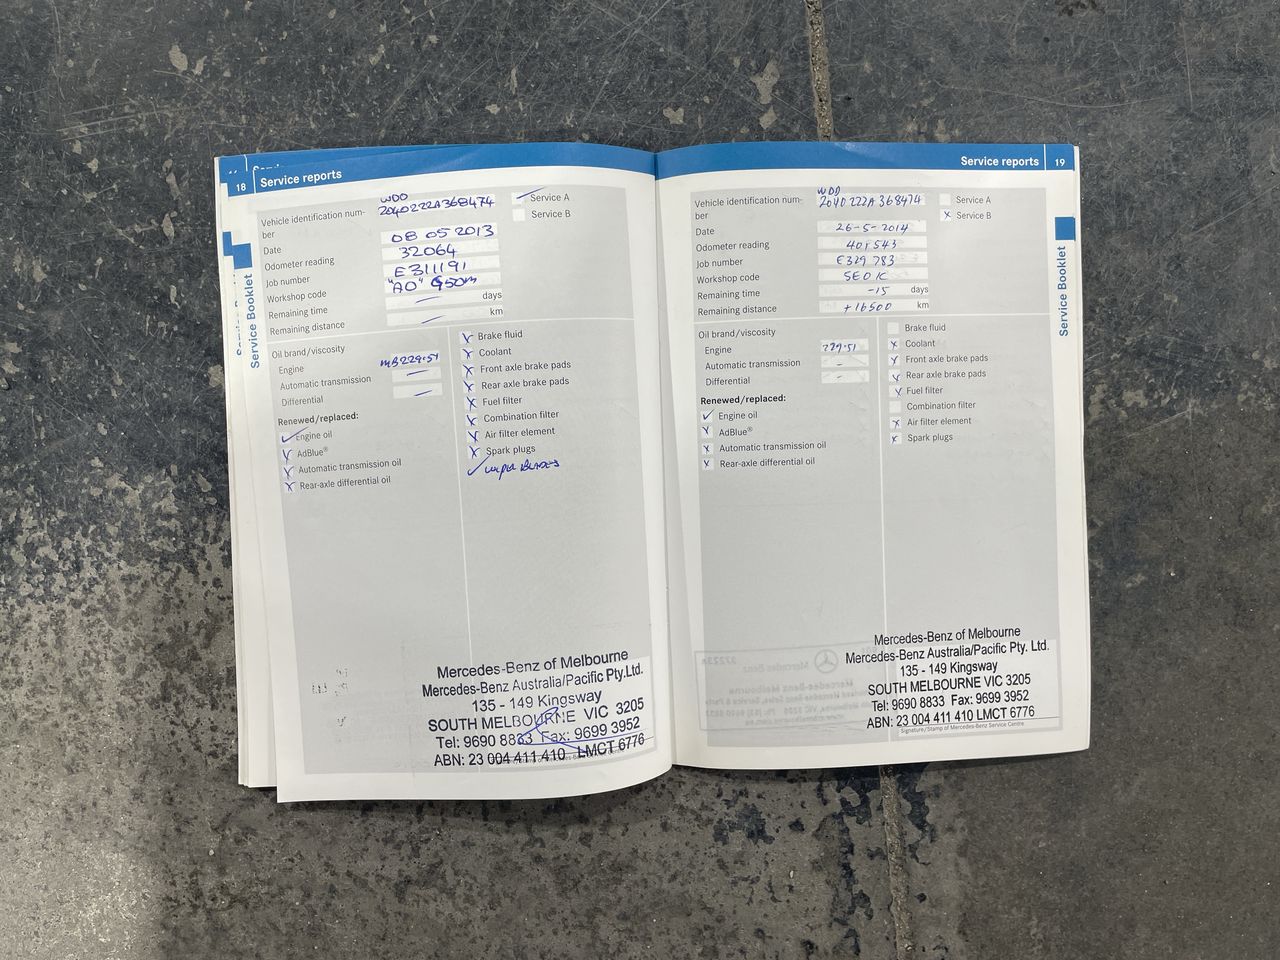 18 Service reports
Vehicle identification num-
ber
WDD
2040222A368474
Service A
Service B
Date
08 05 2013
Odometer reading
32064
Job number
E311191
Workshop code
Remaining time
days
Remaining distance
km
Oil brand/viscosity
Engine
MB229.51
Automatic transmission
Differential
Renewed/replaced:
Engine oil
AdBlue®
Automatic transmission oil
Rear-axle differential oil
Brake fluid
Coolant
Front axle brake pads
Rear axle brake pads
Fuel filter
Combination filter
Air filter element
Spark plugs
Mercedes-Benz of Melbourne
Mercedes-Benz Australia/Pacific Pty.Ltd.
135 - 149 Kingsway
SOUTH MELBOURNE VIC 3205
Tel: 9690 8833 Fax: 9699 3952
ABN: 23 004 411 410 LMCT 6776
Service Booklet
Service reports 19
Vehicle identification num-
ber
WDD
2040222A368474
Service A
Service B
Date
26-5-2014
Odometer reading
Job number
E329783
Workshop code
Remaining time
-15 days
Remaining distance
+16500 km
Oil brand/viscosity
Engine
229.51
Automatic transmission
-
Differential
-
Renewed/replaced:
Engine oil
AdBlue®
Automatic transmission oil
Rear-axle differential oil
Brake fluid
Coolant
Front axle brake pads
Rear axle brake pads
Fuel filter
Combination filter
Air filter element
Spark plugs
Mercedes-Benz of Melbourne
Mercedes-Benz Australia/Pacific Pty. Ltd.
135 - 149 Kingsway
SOUTH MELBOURNE VIC 3205
Tel: 9690 8833 Fax: 9699 3952
ABN: 23 004 411 410 LMCT 6776
Signature/Stamp of Mercedes-Benz Service Centre
Service Booklet